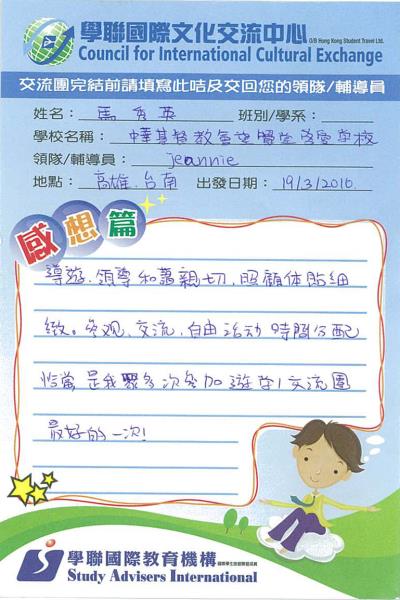 學聯國際文化交流中心 O/B Hong Kong Student Travel Ltd.
Council for International Cultural Exchange
交流團完結前請填寫此咭及交回您的領隊/輔導員
姓名： 馬秀英 班別/學系：
學校名稱： 中華基督教會 學校
領隊/輔導員： Jeannie
地點： 高雄.台南 出發日期： 19/3/2010
感想篇
導遊.領專和藹親切,照顧体貼細
緻。参观、交流,自由活动時間分配
恰當 是我眾多次参加 遊学/交流團
最好的一次!
學聯國際教育機構
Study Advisers International